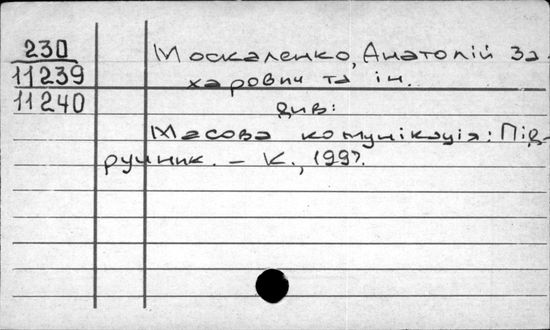 230
11239
11240
Москаленко, Анатолій За-
харович та ін.
див:
Масова комунікація: Під-
ручник. – К., 1997.